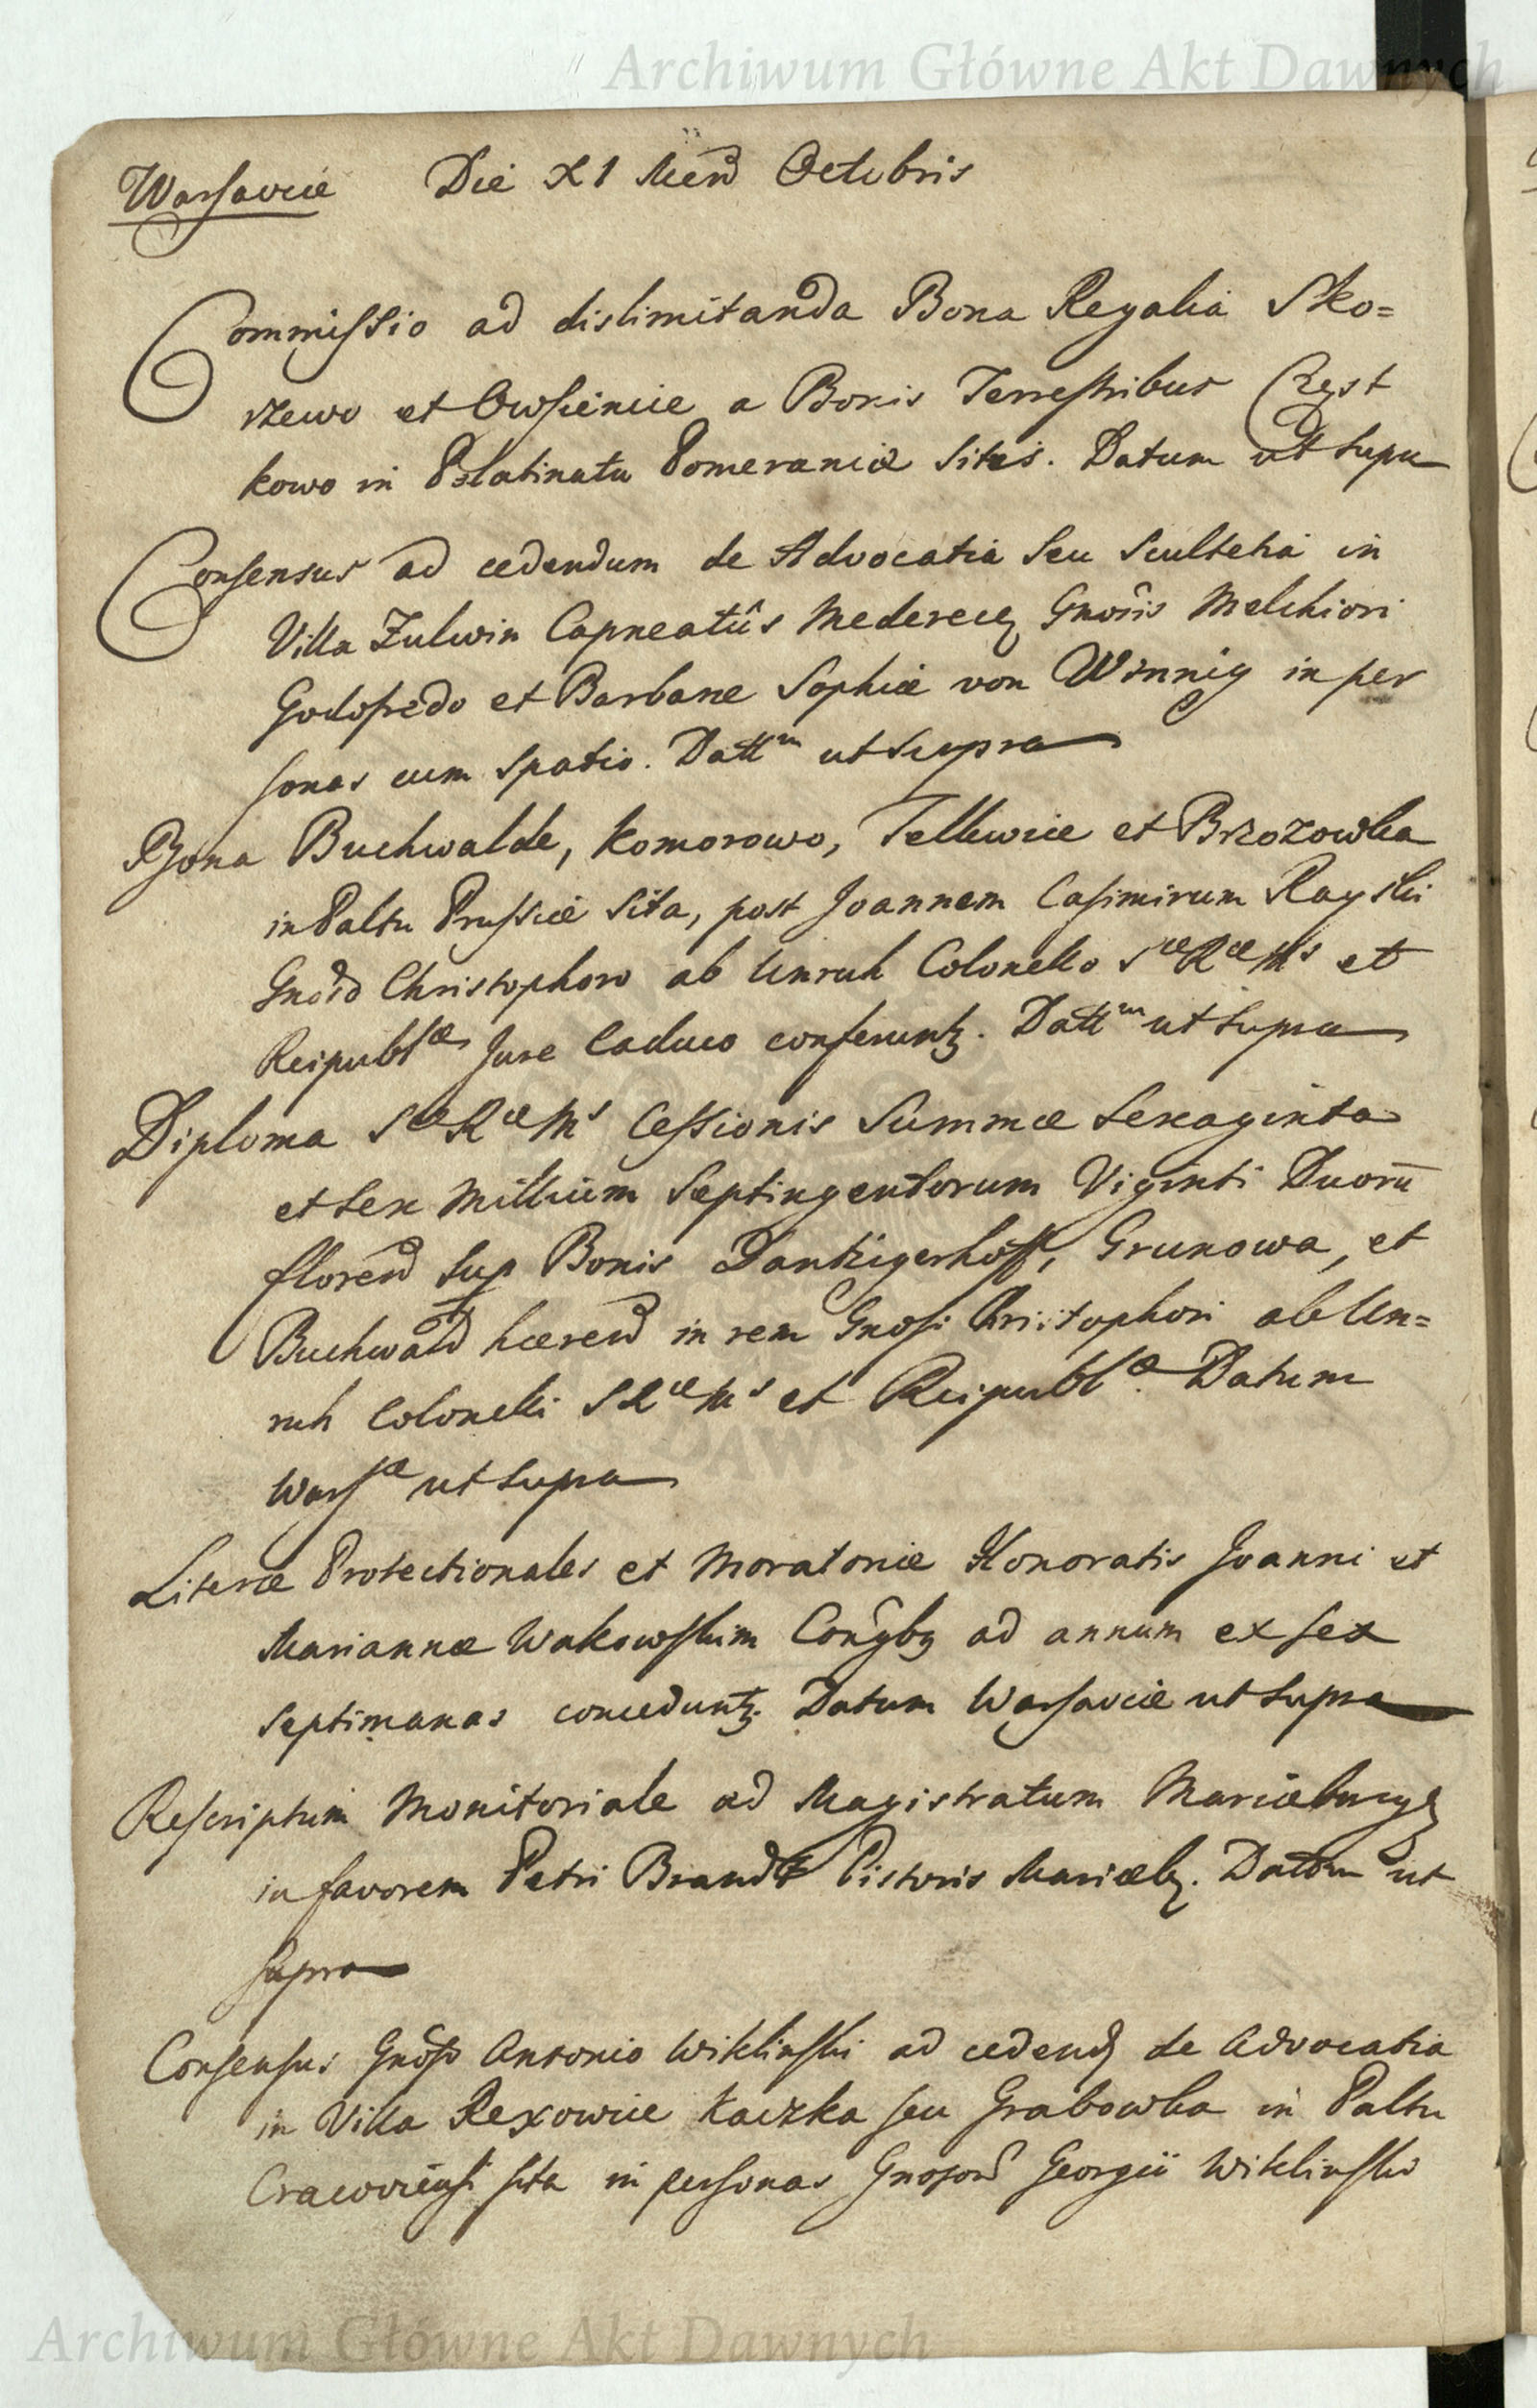 Archiwum Główne Akt Dawnych
Warsaviæ Die XI Mens Octobris
Commissio ad dislimitanda Bona Regalia Sko=
rzewo et Owsienice a Bonis Terrestribus Rzyst
kowo in Palatinatu Pomeraniæ Sitis. Datum ut Supra
Consensus ad cedendum de Advocatia Seu Scultetia in
Villa Zulwin Capneatûs Mederecz Gnôris Melchiori
Godofredo et Barbaræ Sophiæ von Winnig in per
sonas cum Spatio. Datt^m ut Supra
Bona Buchwalde, Komorowo, Tellewice et Brzozowka
in Paltu Prussiæ Sita, post Joannem Casimirum Rayski
Gnoso Christophoro ab Unruh Colonello S^æ R^æ M^s et
Reipubl^æ Jure Caduco conferuntz. Datt^m ut Supra
Diploma S^æ R^æ M^s Cessionis Summæ Sexaginta
et Sex Millium Septingentorum Viginti Duorū
floren Sup Bonis Dantzigerhoff, Grunowa, et
Buchwald hæren in rem Gnosi Christophori ab Un=
ruh Colonelli S R^æ M^s et Reipubl^æ. Datum
Wars^æ ut Supra
Literæ Protectionales et Moratoriæ Honoratis Joanni et
Mariannæ Wakowskim Cōngbz ad annum ex sex
Septimanas conceduntz. Datum Warsaviæ ut Supra
Rescriptum Monitoriale ad Magistratum Mariæburg
in favorem Petri Brandt Pistoris Mariæb. Datum ut
Supra
Consensus Gnoso Antonio Wiklinski ad cedend de Advocatia
in Villa Rexowice Kaczka seu Grabowka in Paltu
Cracoviensi sita in personas Gnosor Georgii Wiklinski
Archiwum Główne Akt Dawnych